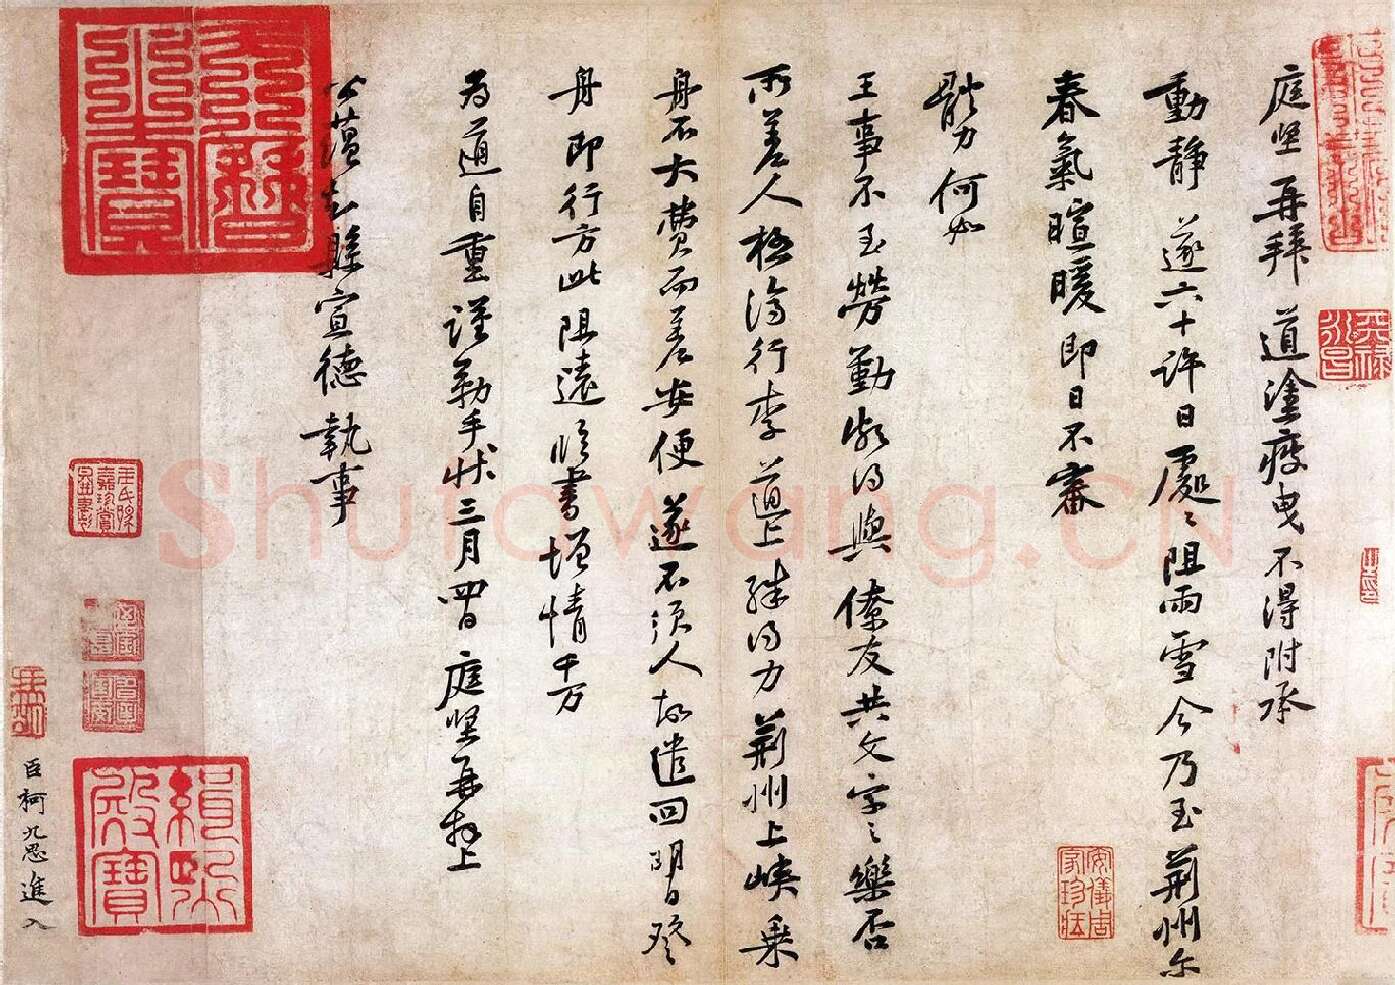 庭堅再拜道塗疲曳不得附承
動靜遂六十許日處〻阻雨雪今乃至荊州尔
春氣暄暖即日不審
體力何如
王事不至勞勤頗得與僚友共文字之樂否
所差人極濟行李道上殊得力荊州上峽乘
舟不大費而差安便遂不須人故遣回明日登
舟即行方此阻遠臨書增情千萬
為道自重謹勒手狀三月四日庭堅再拜上
公蘊知縣宣德執事
臣柯九思進入
天曆之寶
緝熙殿寶
安儀周家珍藏
Shufawang.CN